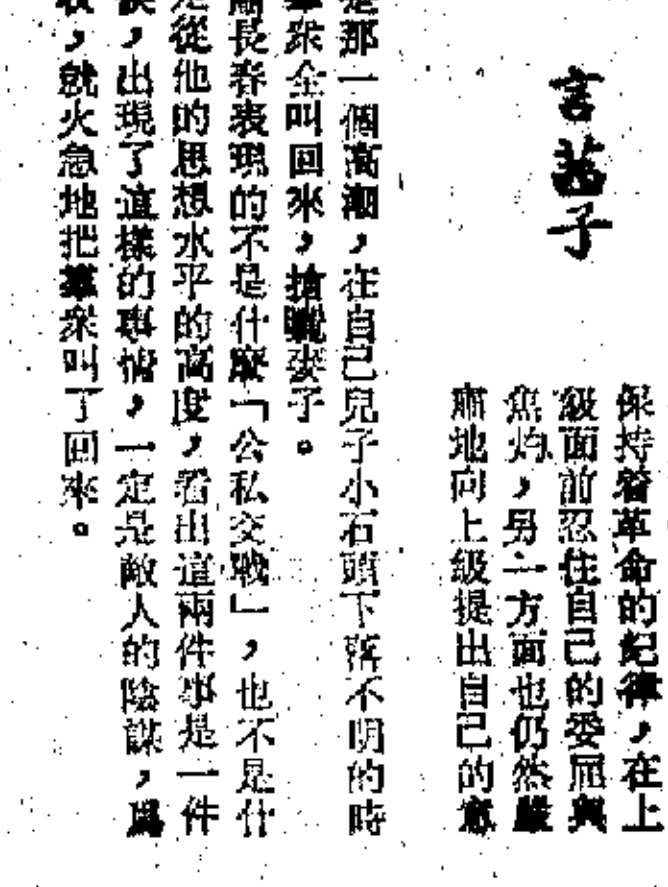 保持着革命的紀律，在上
級面前忍住自己的委屈與
焦灼，另一方面也仍然嚴
肅地向上級提出自己的意
言茜子
是那一個高潮，在自己兒子小石頭下落不明的時
羣衆全叫回來，搶麥子。
蘭長春表現的不是什麼「公私交戰」，也不是什
是從他的思想水平的高度，看出這兩件事是一件
，出現了這樣的事情，一定是敵人的陰謀，爲
，就火急地把羣衆叫了回來。